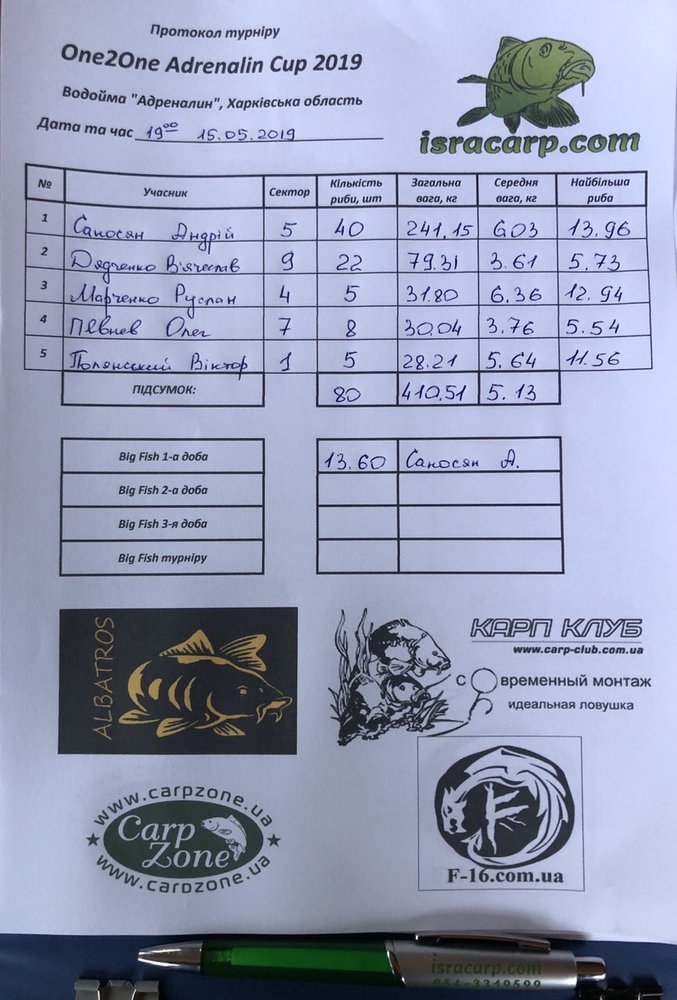 Протокол турніру
One2One Adrenalin Cup 2019
Водойма "Адреналин", Харківська область
Дата та час 19⁰⁰ 15.05.2019
isracarp.com
№ Учасник Сектор Кількість риби, шт Загальна вага, кг Середня вага, кг Найбільша риба
1 Саносян Андрій 5 40 241,15 6.03 13.96
2 Дядченко В'ячеслав 9 22 79.31 3.61 5.73
3 Марченко Руслан 4 5 31.80 6.36 12.94
4 Пєвнев Олег 7 8 30.04 3.76 5.54
5 Полянський Віктор 1 5 28.21 5.64 11.56
ПІДСУМОК: 80 410.51 5.13
Big Fish 1-а доба 13.60 Саносян А.
Big Fish 2-а доба
Big Fish 3-я доба
Big Fish турніру
ALBATROS
КАРП КЛУБ
www.carp-club.com.ua
современный монтаж
идеальная ловушка
www.carpzone.ua
Carp
Zone
www.carpzone.ua
F-16.com.ua
isracarp.com